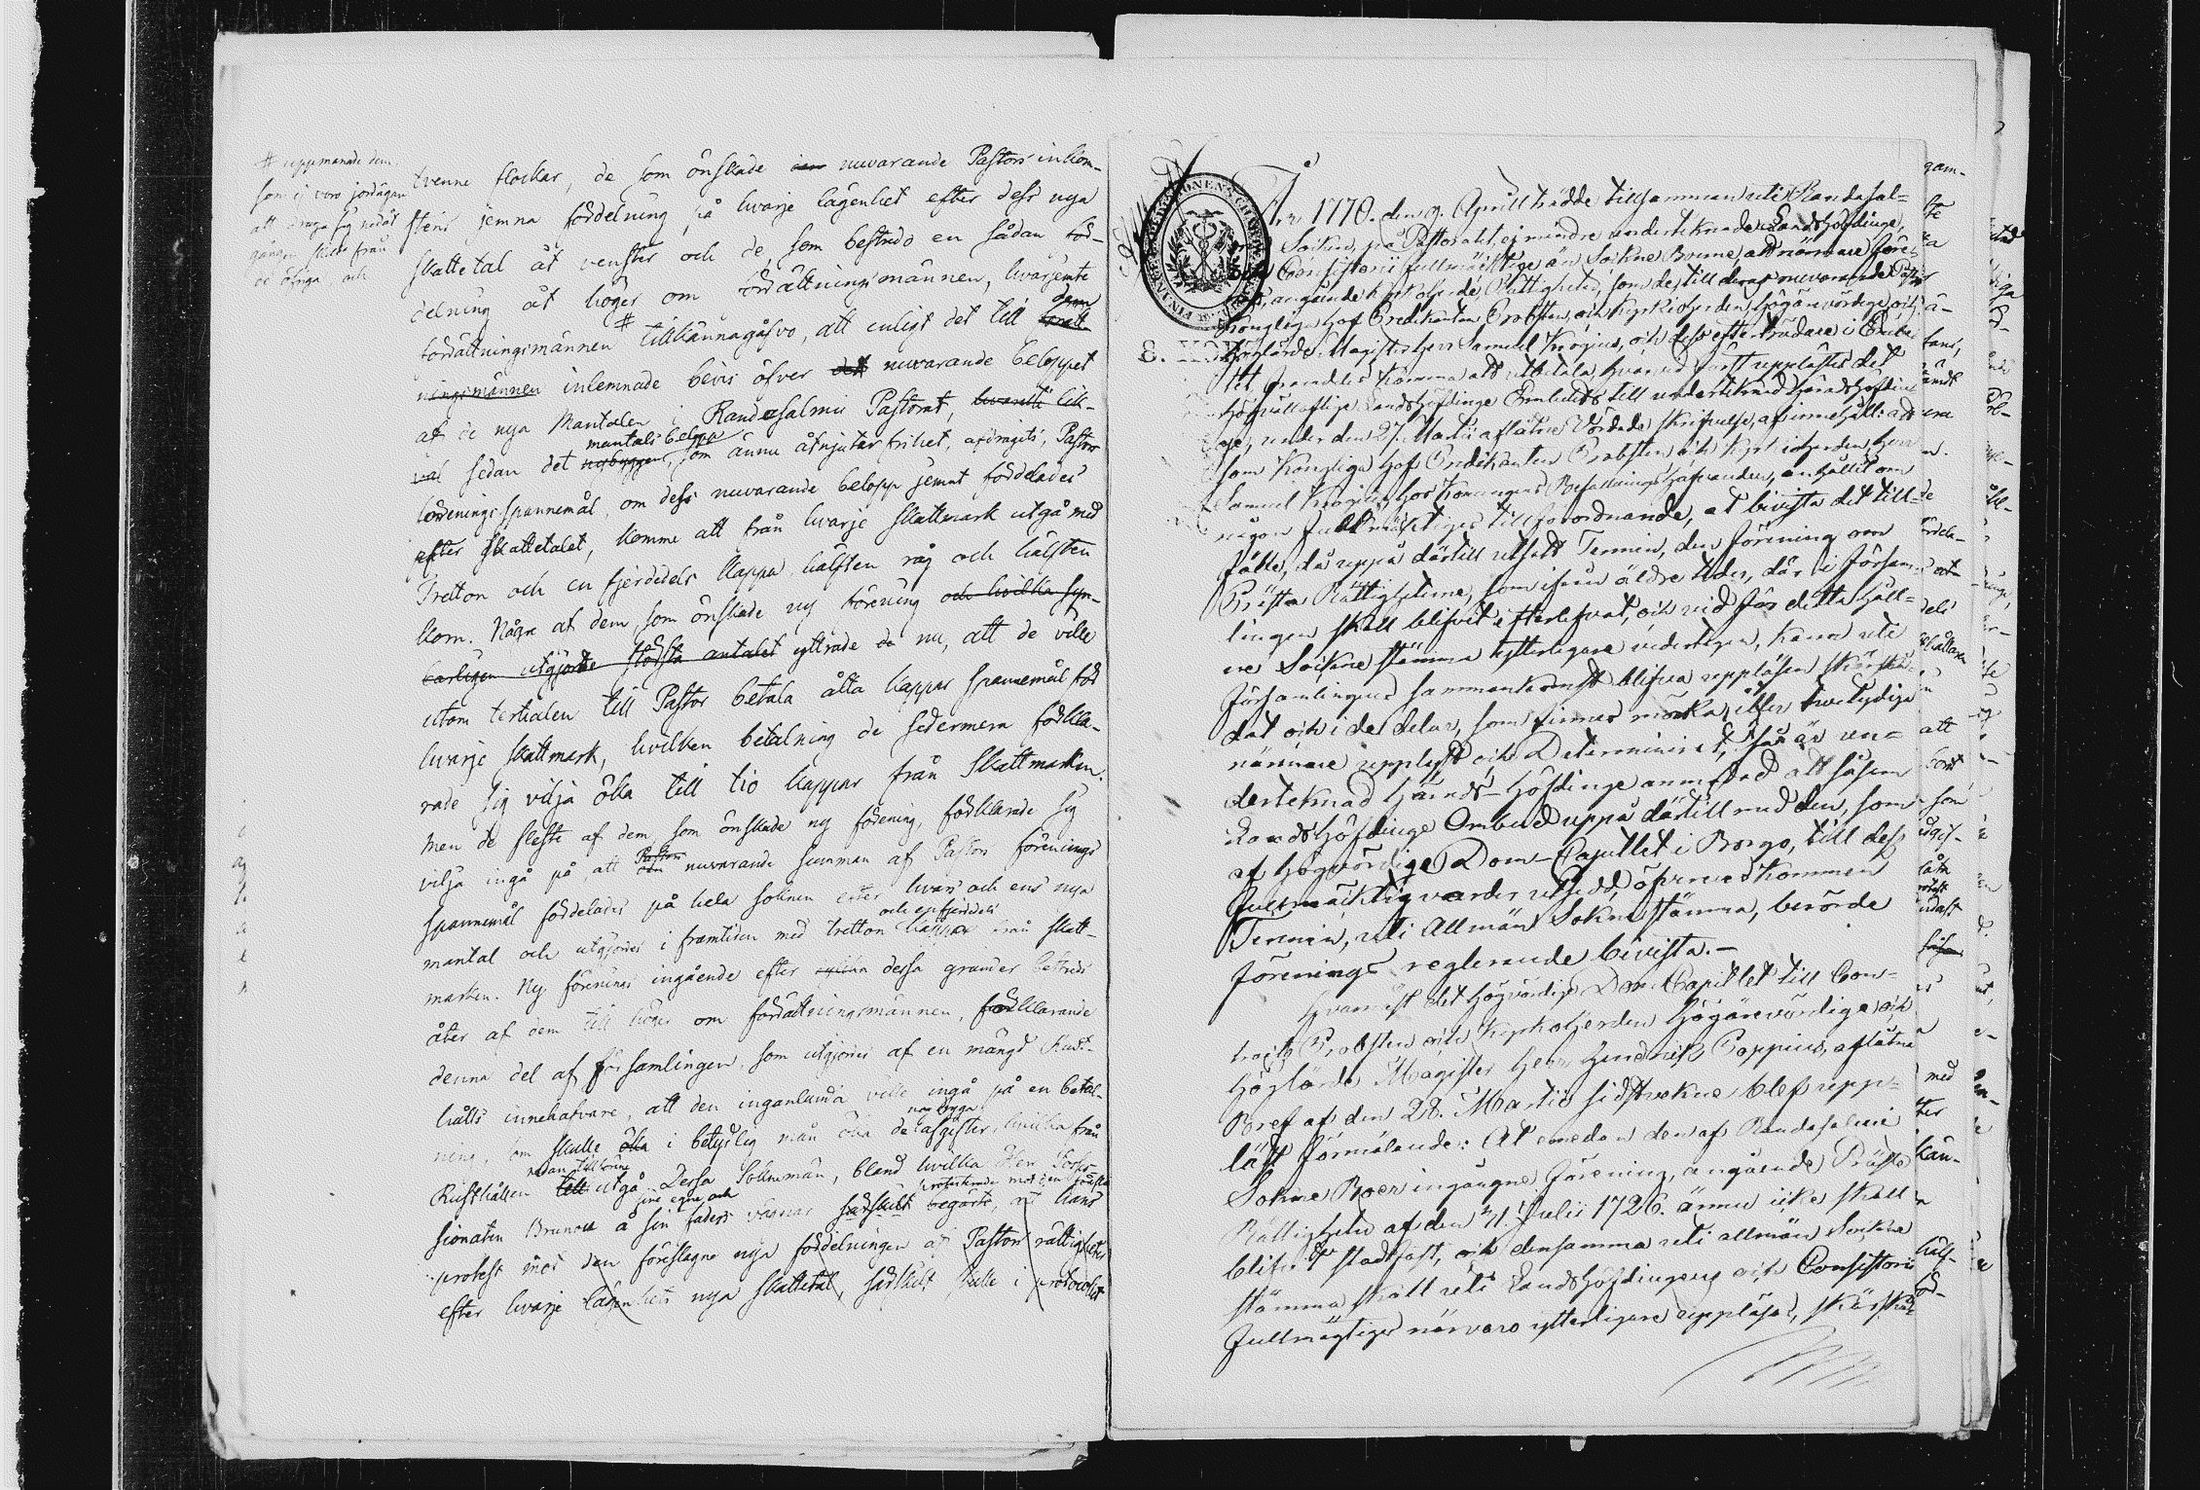 # uppmanade dem,
som ej voro jordägare
att draga sig
skilde från
de öfriga, och
tvenne flockar, de som önskade nuvarande Pastors inkom-
stens jemna fördelning på hvarje lägenhet efter dess nya
skattetal åt venster och de, som bestrido en sådan för-
delning åt höger om förrättningsmännen, hvarjemte
förrättningsmännen # tillkännagåfvo, att enligt det till dem
ningsmännen inlemnade bevis öfver det nuvarande beloppet
af de nya Mantalen i Randasalmi Pastorat, hvartill lik-
väl sedan det mantals belopp nybyggen, som ännu åtnjuter frihet, afdragits, Pastors
föreningsspannemål, om dess nuvarande belopp jemnt fördelades
efter skattetalet, komme att från hvarje skattmark utgå med
Tretton och en fjerdedels kappa, hälften råg och hälften
korn. Några af dem, som önskade ny förening och hvilka syn-
barligen utgjorde största antalet yttrade de nu, att de ville
utom tertialen till Pastor betala åtta kappar spannemål för
hvarje skattmark, hvilken betalning de sedermera förkla-
rade sig vilja öka till tio kappar från Skattmarken.
Men de fleste af dem, som önskade ny förening, förklarade sig
vilja ingå på, att Pastors nuvarande summan af Pastors förenings
spannemål fördelades på hela soknen efter hvars och ens nya
mantal och utgjordes i framtiden med tretton och en fjerdedels kappar från skatt-
marken. Ny förenings ingående efter dessa grunder bestreds
åter af dem till höger om förrättningsmännen, förklarande
denna del af församlingen, som utgjordes af en mängd Rust-
hålls innehafvare, att den inganlunda ville ingå på en betal-
ning, som skulle öka i betydlig mån öka de afgifter, hvilka från
Rusthållen redan tillförne utgå. Dessa Soknemän, bland hvilka Herr
Brunou å sine egne och sin faders vägnar särskildt begärte, att hans
protest mot den föreslagne nya fördelningen af Pastors rättigheter
efter hvarje lägenhets nya skattetal, särskildt skulle i protocollet
År 1770. den 9. Aprill trädde tillsamman uti Randasal-
mi Sockn, på Pastoratet, ej mindre undertecknade Landshöfdinge,
och Consistorii fullmäktige än Sockne Boerne, att närmare före-
angående Kyrkoherde Rättigheter, som de till deras nuvarande Pastor
Kongliga Hof Predikanten Probsten och Kyrkioherden, Högärevördige och
Höglärde Magister Herr Samuel Krogius, och dess efterträdare i Embe-
tet framdeles komma att utbetala, hvarvid först upplästes det
Högvällofliga Landshöfdinge Embetets till undertecknad Häradshöfdin-
ge, under den 27. Martii aflåtne Vördade skrifvelse, af innehåll: att
som Kongliga Hof Predikanten Probsten och Kyrkioherden, Herr
Samuel Krogius hos Konungens Befallningshafvanden, anhållit om
någon Fullmäktiges till förordnande, at bivista det till-
fälle, då uppå därtill utsatt Termin, den förening om
Prästa Rättigheterne, som ifrån äldre tider, där i Försam-
lingen skall blifvit efterlefvat, och vid för detta håll-
ne Sockne stämma ytterligare vedertagen, kann uti
Församlingens sammankomst blifva uppläsen skärskå-
dat och i de delar, som finnes mörka eller tvetydiga
närmare upplyst och Determinerat, så är un-
dertecknad Härads-Höfdinge anmodad att såsom
Landshöfdinge Ombud uppå därtill med den, som
af Högvördige Dom-Capitlet i Borgo, till dess
Fullmäktig varder utsedd, öfverenskommen
Termin, uti Allmän Sokne stämma, berörde
förenings reglerande bivista.-
Hvarnäst det Högvördige Dom-Capitlet till Con-
tracts Probsten och Kyrkoherden Högärevördige och
Höglärde Magister Herr Hendrick Poppius, aflåtna
Bref af den 28. Martii sidstvekne blef upp-
läst förmälande: At emedan den af Randasalmi
Sokne Boer ingångne Förening, angående Präste
Rättigheter af den 31. Julii 1726. ännu icke skall
blifvit stadfäst, och densamma uti allmän Sockne
stämma skall uti Landshöfdingens och Consistorii
Fullmägtiges närvaro ytterligare uppläsas, skärskå-